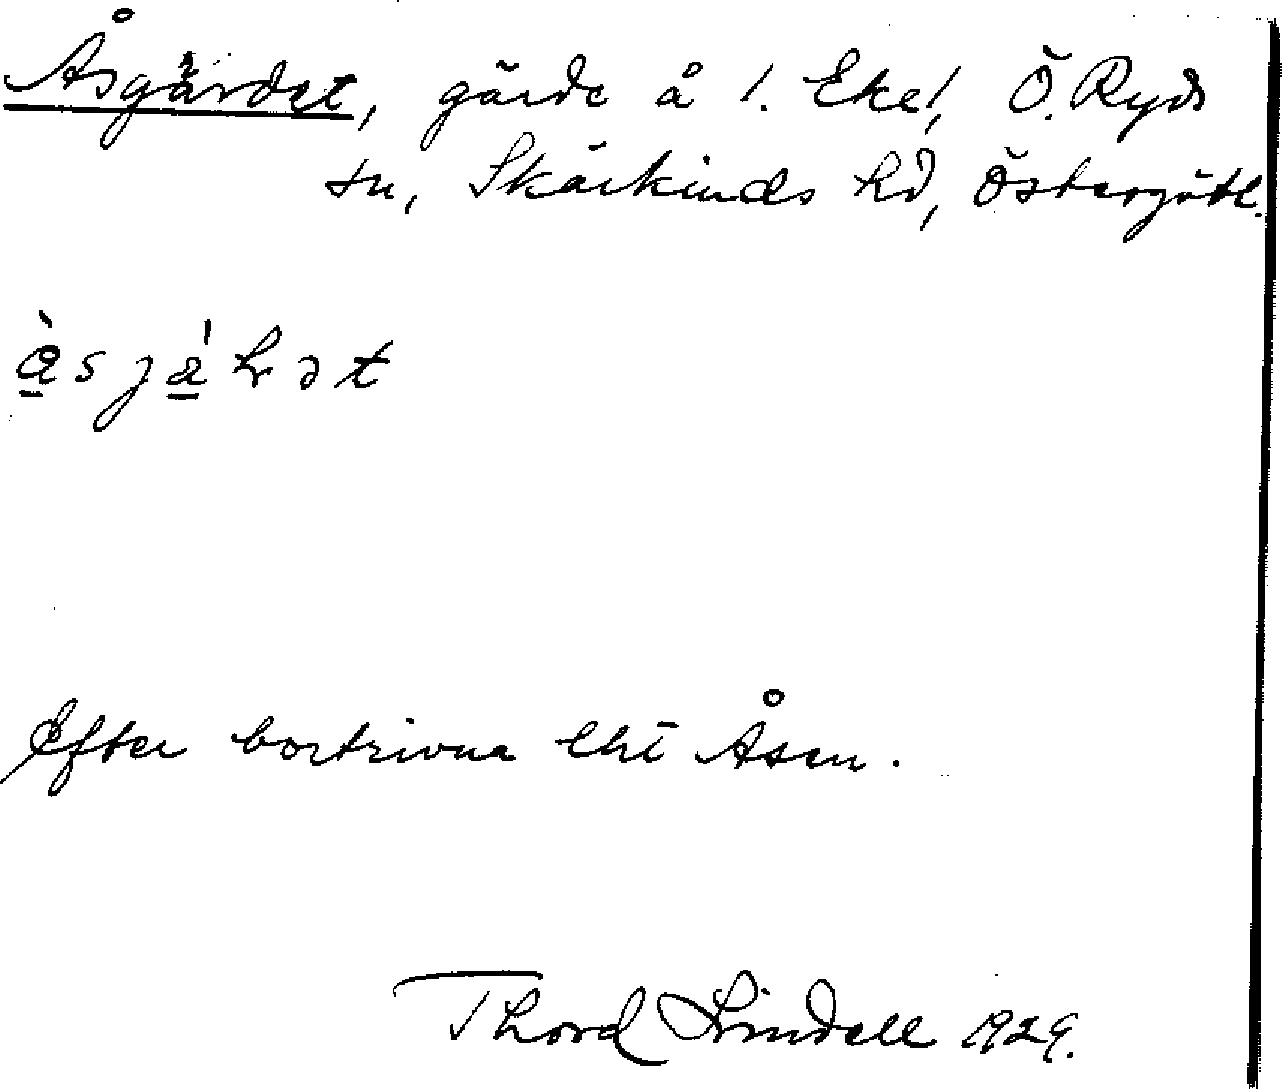 Åsgärdet, gärde å l. Eke!, Ö. Ryds
sn, Skärkinds hd, Östergötl.
Efter bortrivna lht Åsen.
Thord Lindell 1929.